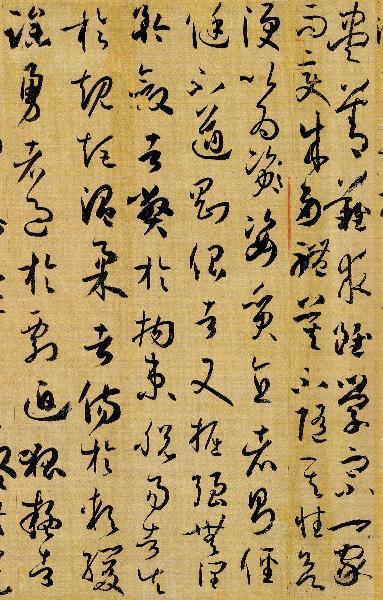 盡善難求雖學宗一家
而變成多體莫不隨其性欲
便以為姿質直者則俓
侹不遒剛佷者又掘強無潤
矜斂者弊於拘束脫易者失
於規矩溫柔者傷於軟緩
躁勇者過於剽迫狐疑者